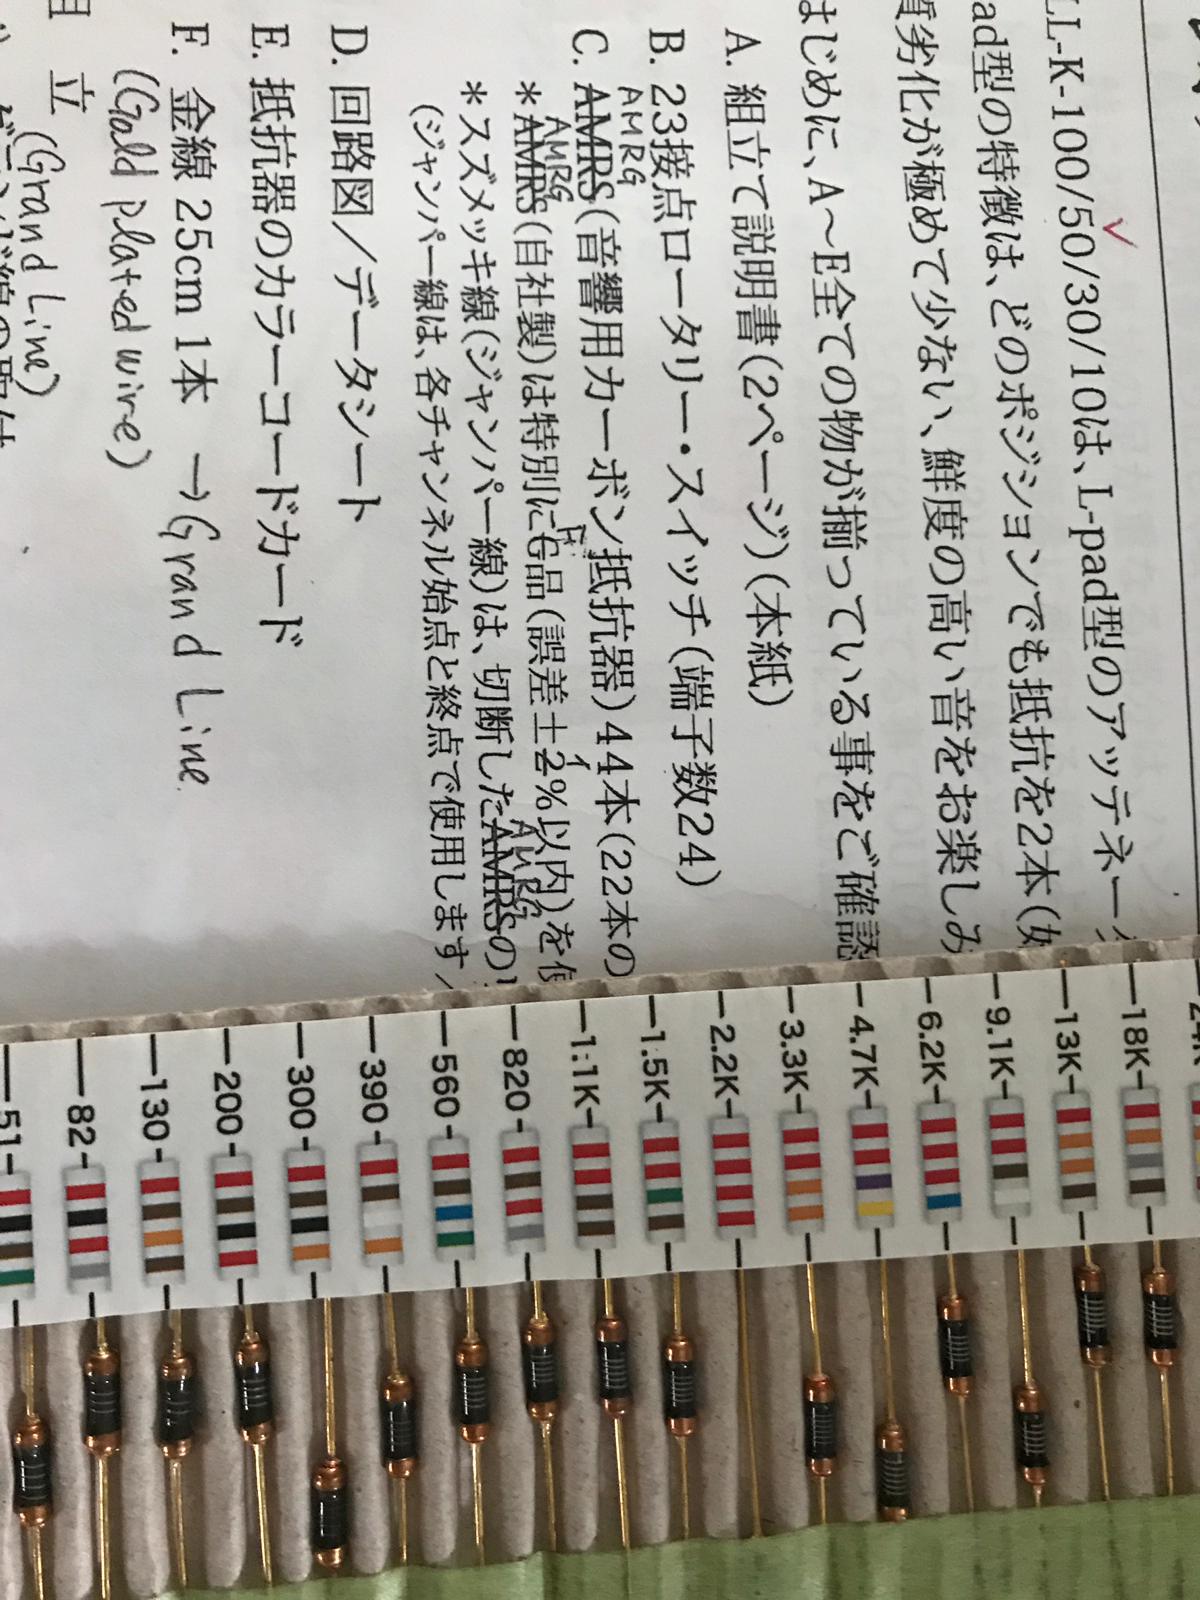 LL-K-100/50/30/10は、L-pad型のアッテネー
ad型の特徴は、どのポジションでも抵抗を2本(
劣化が極めて少ない、鮮度の高い音をお楽しみ
はじめに、A～E全ての物が揃っている事をご確認
A. 組立て説明書(2ページ)(本紙)
B. 23接点ロータリー・スイッチ(端子数24)
AMRG
C. AMRS(音響用カーボン抵抗器)44本(22本の
AMRG
*AMRS(自社製)は特別にG品(誤差±2%以内)を使
F
1
*スズメッキ線(ジャンパー線)は、切断したAMRSの
AMRG
(ジャンパー線は、各チャンネル始点と終点で使用します
D. 回路図／データシート
E. 抵抗器のカラーコードカード
F. 金線 25cm 1本 →Grand Line
(Gald plated wire)
立
(Grand Line)
51
82
130
200
300
390
560
820
1.1K
1.5K
2.2K
3.3K
4.7K
6.2K
9.1K
13K
18K